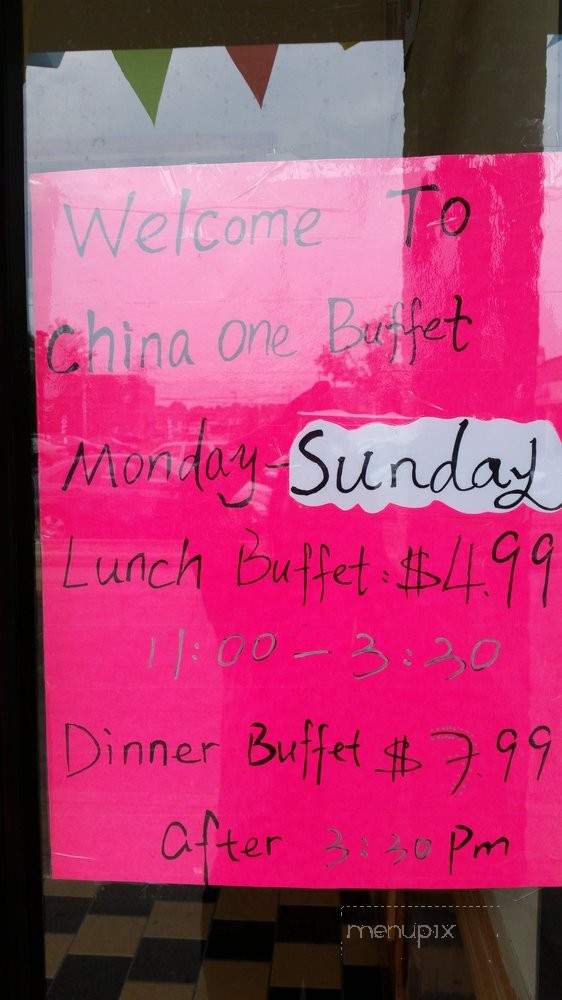 Welcome To
China One Buffet
Monday-Sunday
Lunch Buffet: $4.99
11:00-3:30
Dinner Buffet $7.99
after 3:30 Pm
menupix